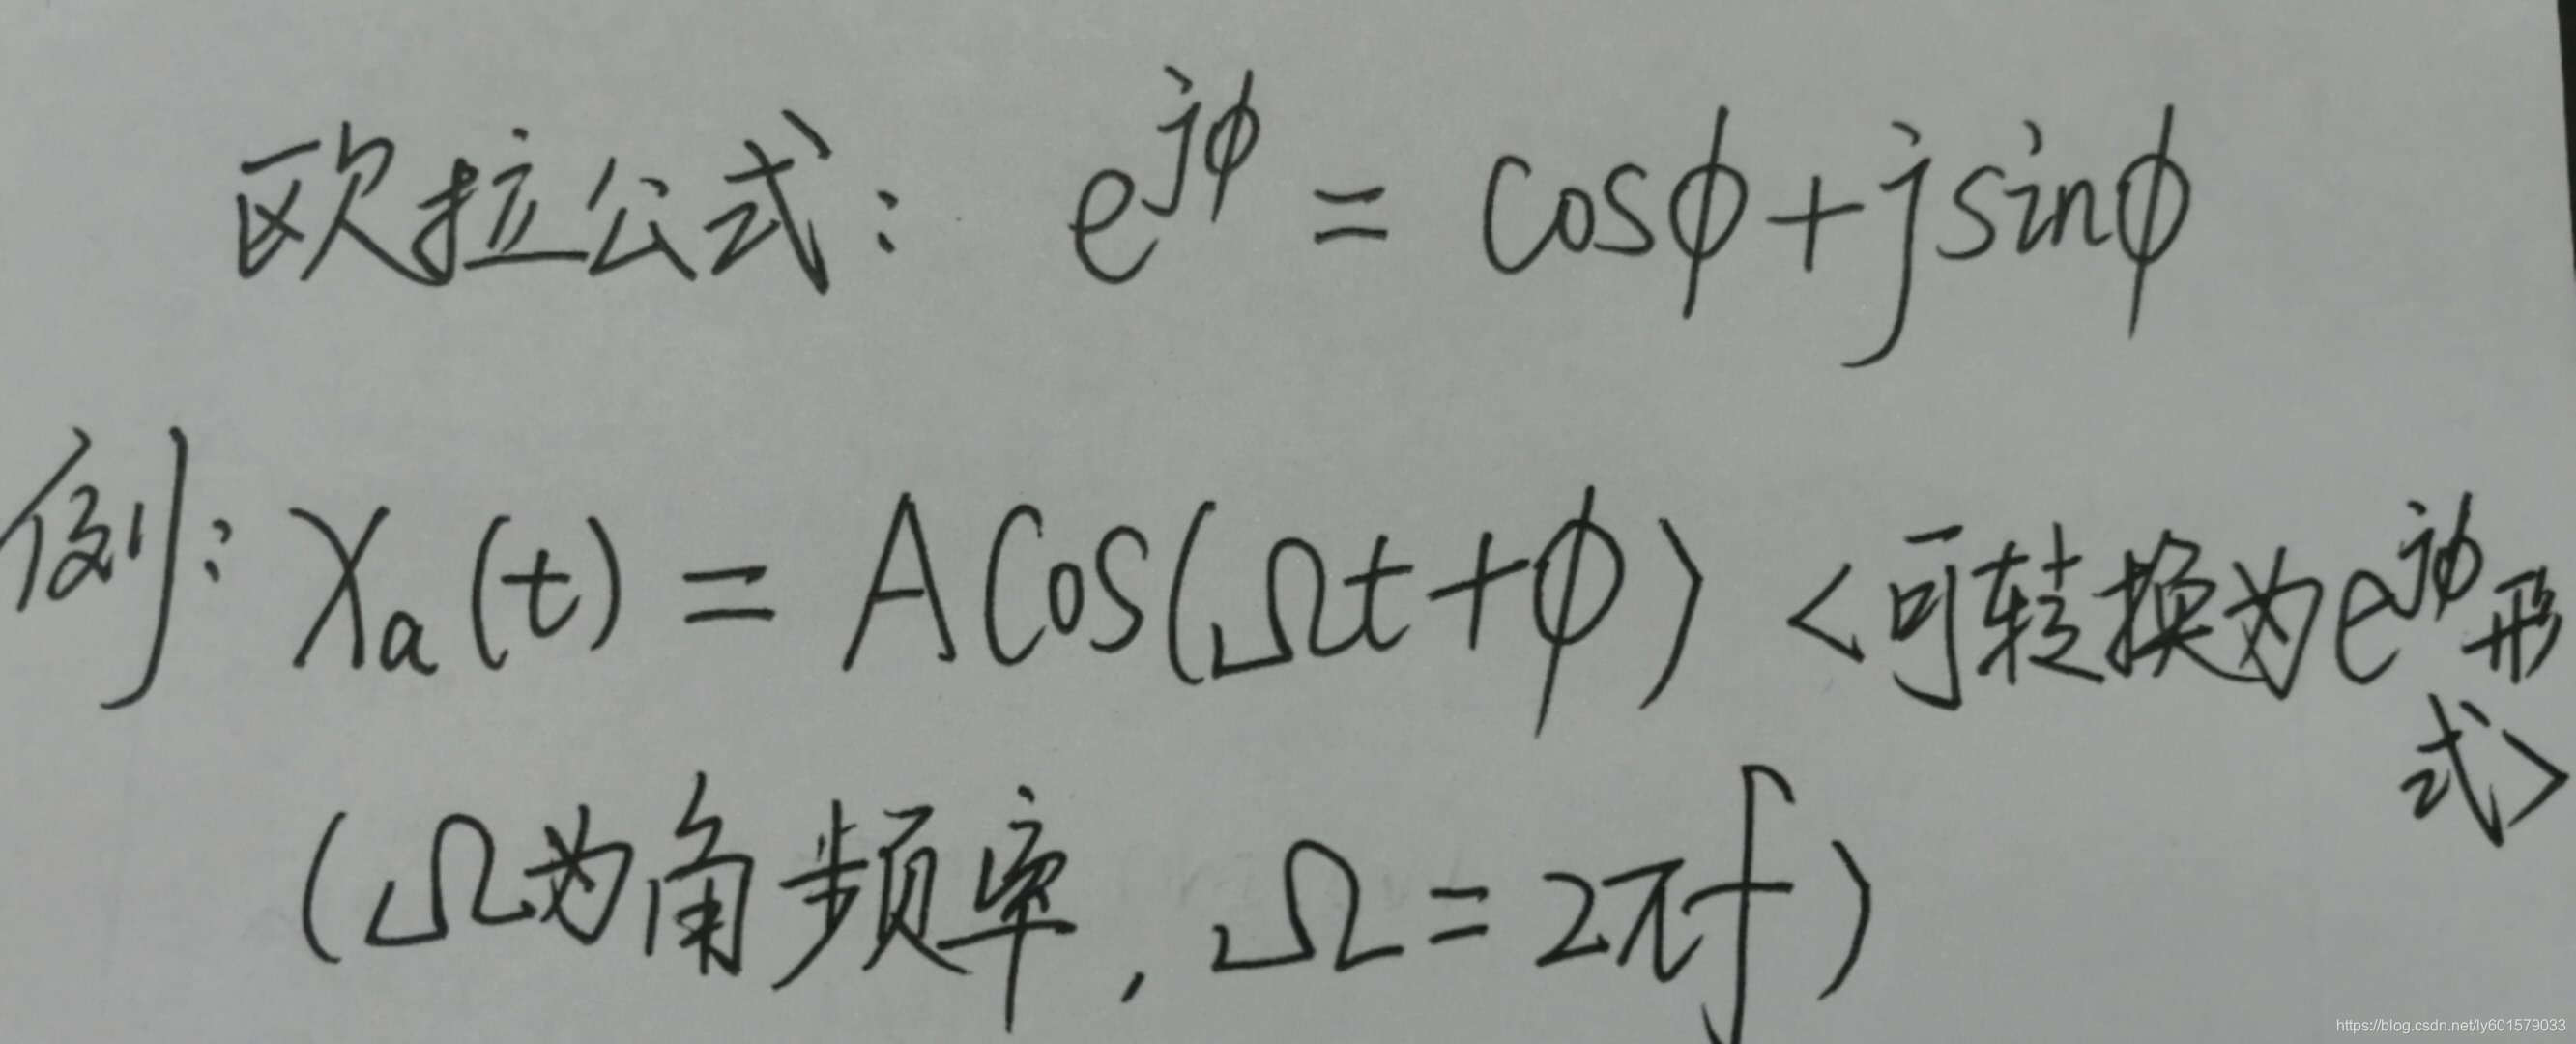 欧拉公式： e^{jϕ} = cosϕ+jsinϕ
例：X_a(t) = A Cos(Ωt+ϕ) <可转换为e^{jϕ}形
式>
(Ω为角频率, Ω=2πf)
https://blog.csdn.net/ly601579033